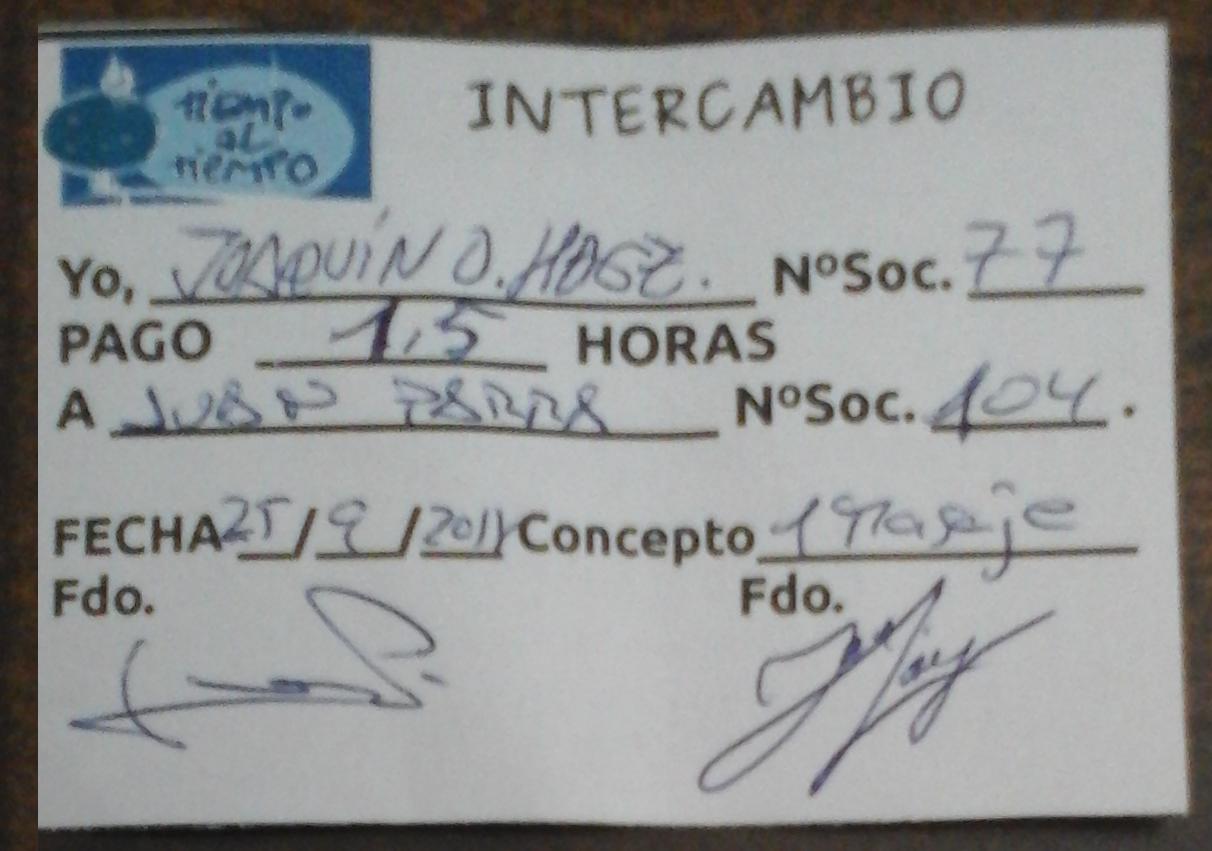 tiempo
AL
tiempo
INTERCAMBIO
Yo, JOAQUÍN O. Nº Soc. 77
PAGO 1,5 HORAS
A JUAN PARRA Nº Soc. 104.
FECHA 25/9/ Concepto 1 masaje
Fdo. Fdo.